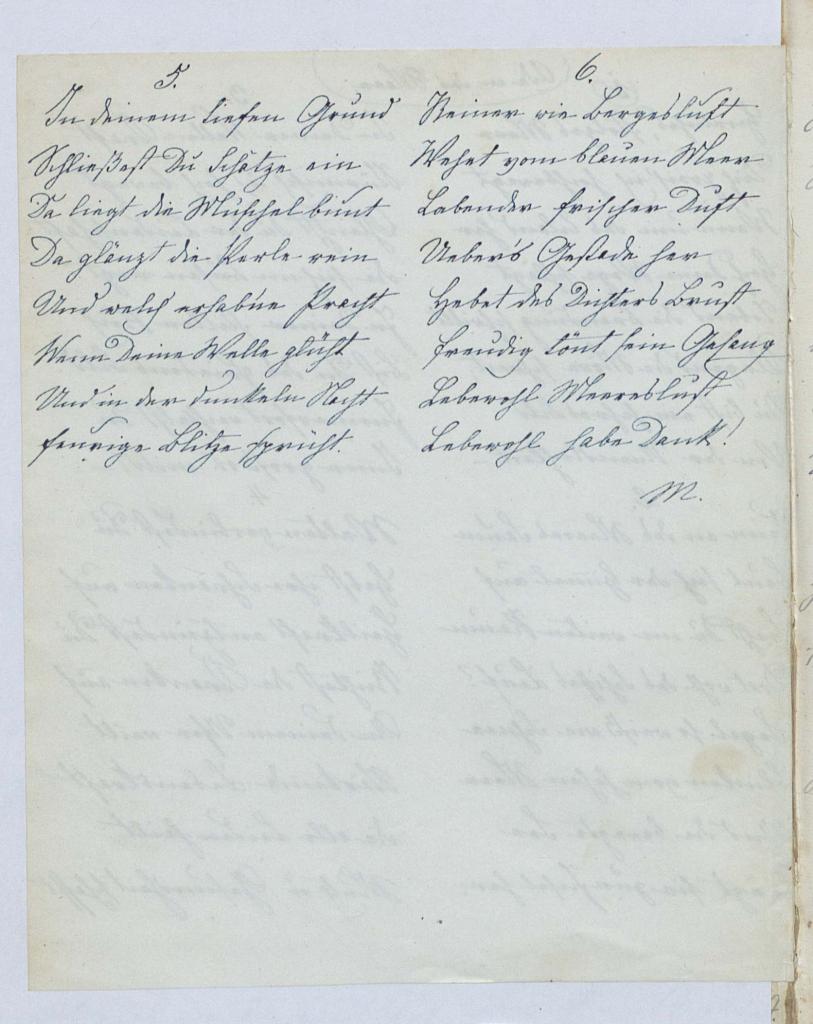 5.
In deinem tiefen Grund
Schließest Du Schätze ein
Da liegt die Muschel bunt
Da glänzt die Perle rein
Und welch erhab'ne Pracht
Wenn Deine Welle glüht
Und in der dunkeln Nacht
feurige Blitze sprüht.
6.
Reiner wie Bergesluft
Wehet vom blauen Meer
Labender frischer Duft
Ueber's Gestade her
Hebet des Dichters Brust
freudig tönt sein Gesang
Lebewohl Meereslust
Lebewohl habe Dank!
M.